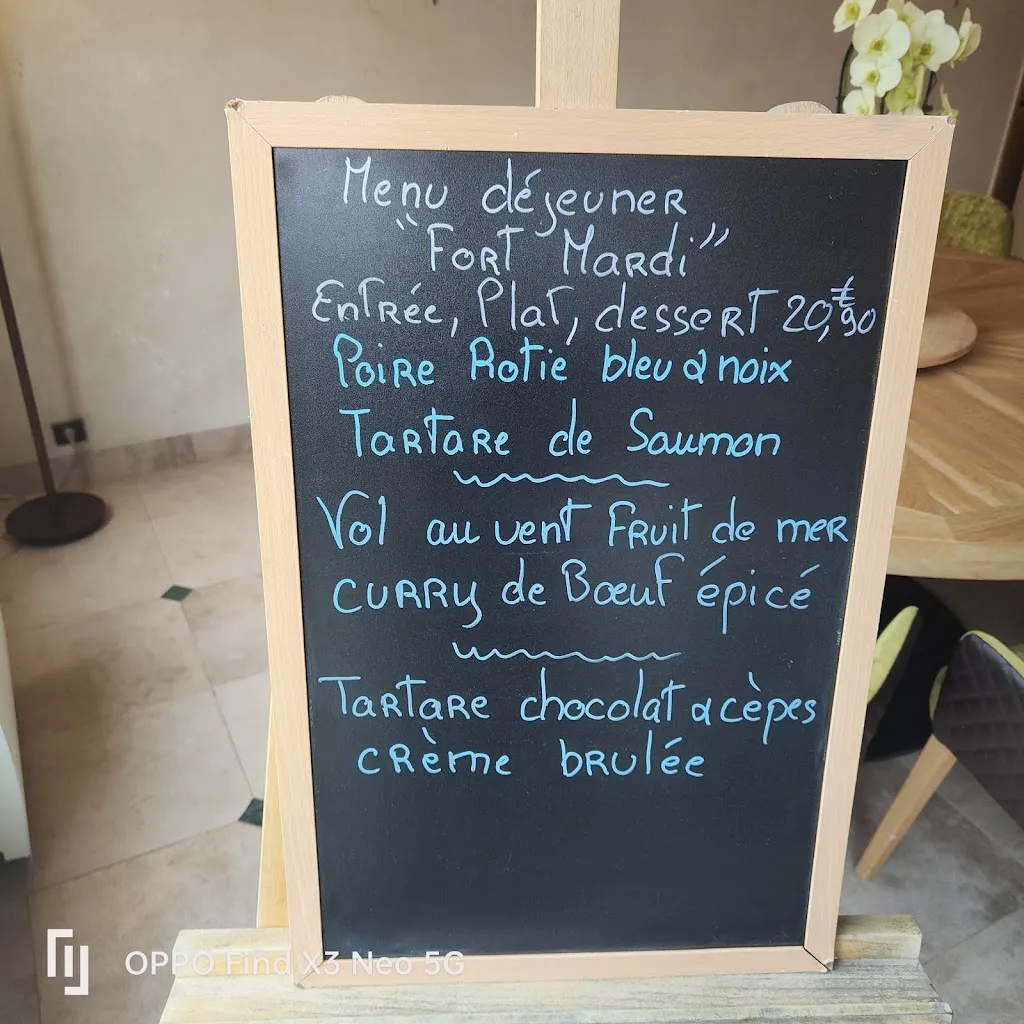 Menu déjeuner
"Fort Mardi"
Entrée, Plat, dessert 20,€90
Poire Rotie bleu & noix
Tartare de Saumon
Vol au vent Fruit de mer
curry de Bœuf épicé
Tartare chocolat & cèpes
crème brulée
OPPO Find X3 Neo 5G